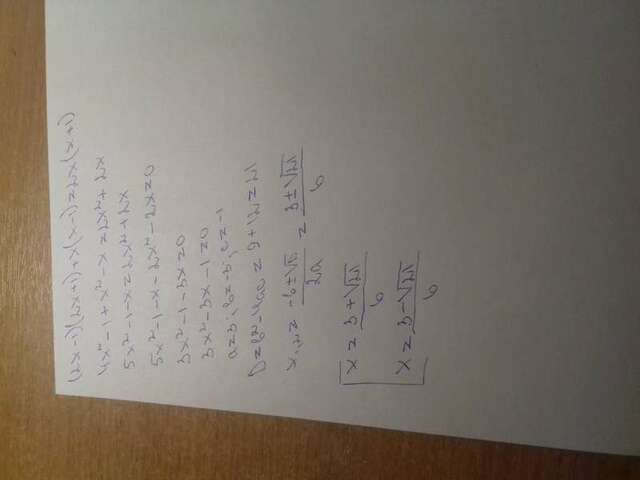 (2x-1)(2x+1)+x(x-1)=2x(x+1)
4x²-1+x²-x=2x²+2x
5x²-1-x=2x²+2x
5x²-1-x-2x²-2x=0
3x²-1-3x=0
3x²-3x-1=0
a=3; b=-3; c=-1
D=b²-4ac=9+12=21
x₁,₂= (-b±√D)/2a = (3±√21)/6
[x = (3+√21)/6
x = (3-√21)/6